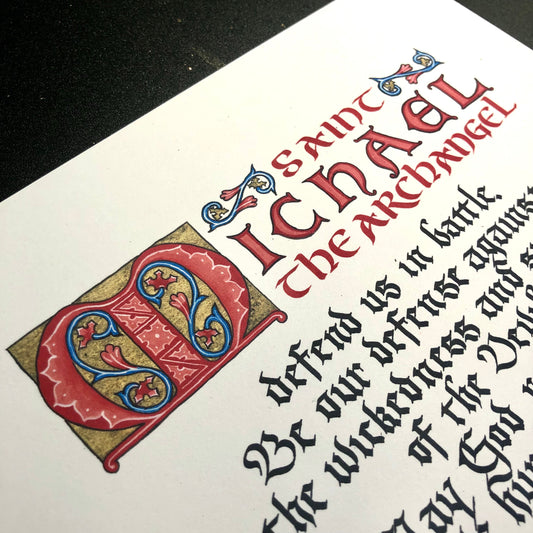 SAINT
MICHAEL
THE ARCHANGEL
defend us in battle,
Be our defense against
the wickedness and
of the
May God